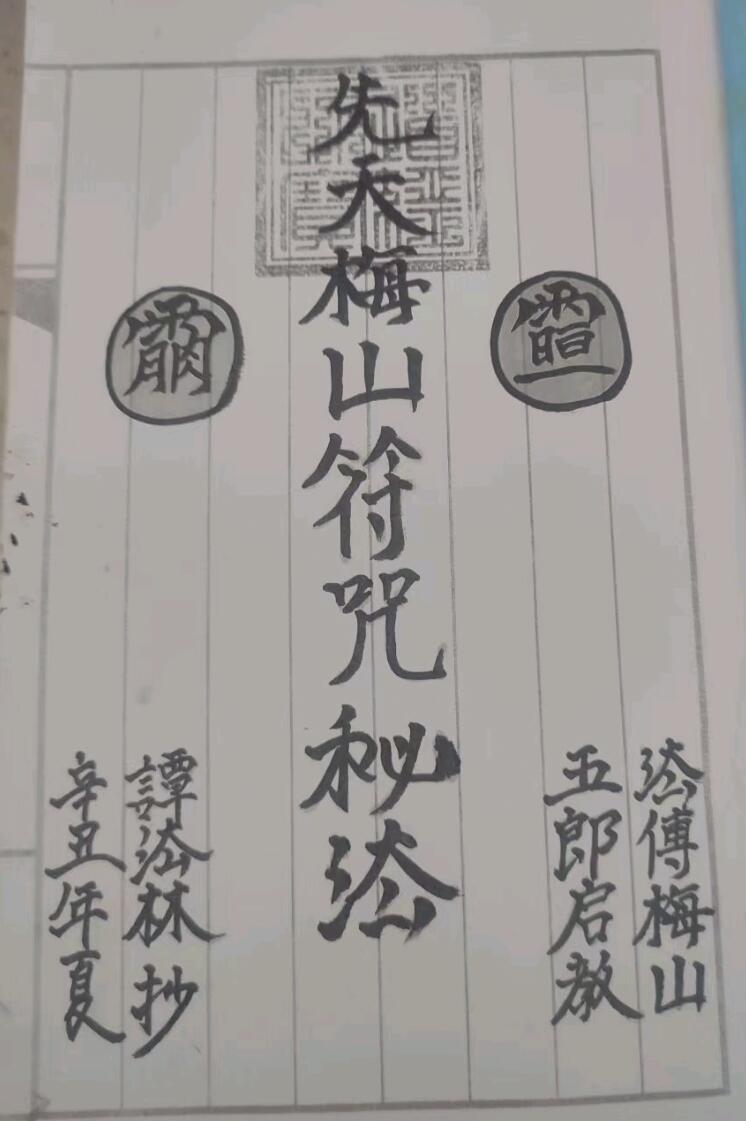 法傳梅山
五郎启教
先天梅山符咒秘法
譚法林抄
辛丑年夏